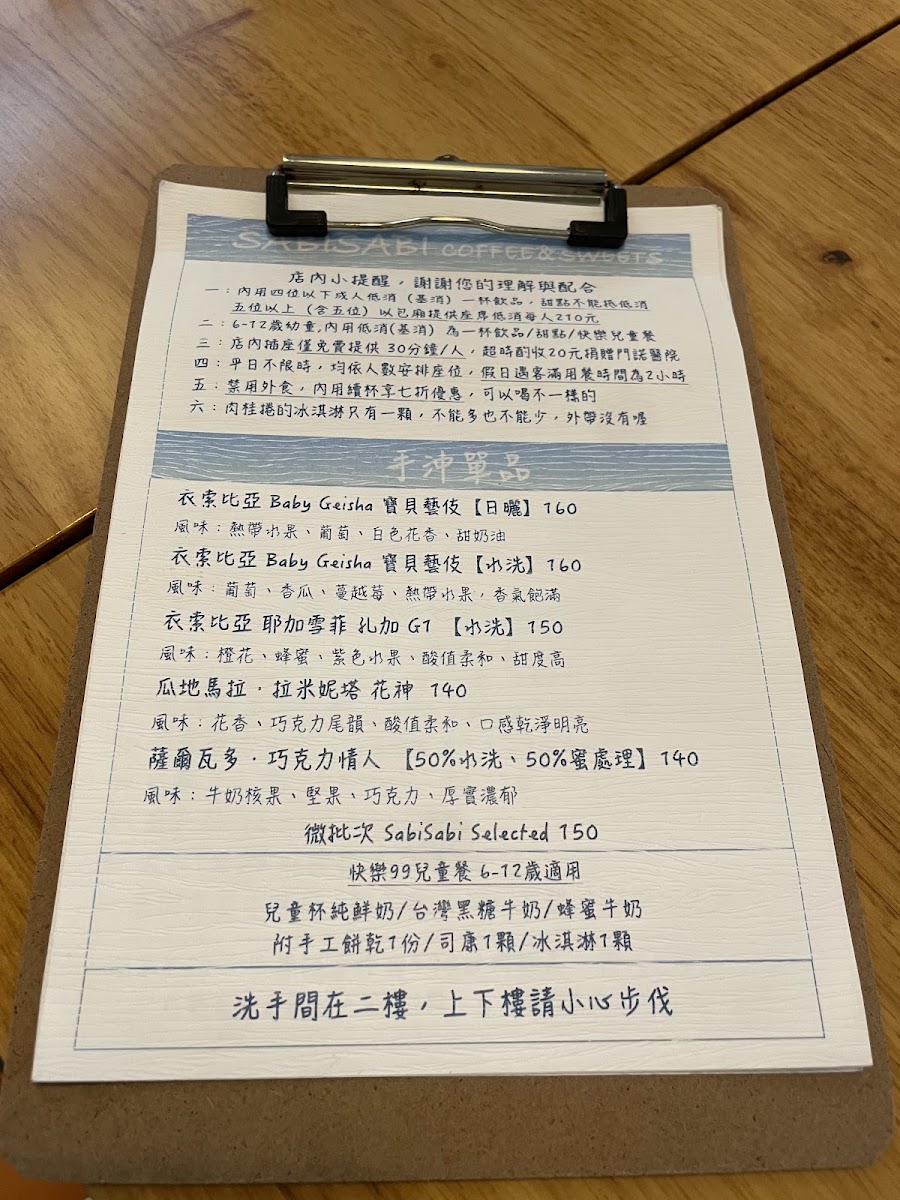 SABISABI COFFEE&SWEETS
店內小提醒，謝謝您的理解與配合
一：內用四位以下成人低消（基消）一杯飲品，甜點不能抵低消
五位以上（含五位）以包廂提供座席低消每人210元
二：6-12歲幼童,內用低消(基消) 為一杯飲品/甜點/快樂兒童餐
三：店內插座僅免費提供 30分鐘/人，超時酌收20元捐贈門諾醫院
四：平日不限時，均依人數安排座位，假日遇客滿用餐時間為2小時
五：禁用外食，內用續杯享七折優惠，可以喝不一樣的
六：肉桂捲的冰淇淋只有一顆，不能多也不能少，外帶沒有喔
手沖單品
衣索比亞 Baby Geisha 寶貝藝伎【日曬】160
風味：熱帶水果、葡萄、白色花香、甜奶油
衣索比亞 Baby Geisha 寶貝藝伎【水洗】160
風味：葡萄、香瓜、蔓越莓、熱帶水果，香氣飽滿
衣索比亞 耶加雪菲 孔加 G1 【水洗】150
風味：橙花、蜂蜜、紫色水果、酸值柔和、甜度高
瓜地馬拉．拉米妮塔 花神 140
風味：花香、巧克力尾韻、酸值柔和、口感乾淨明亮
薩爾瓦多．巧克力情人 【50%水洗、50%蜜處理】140
風味：牛奶核果、堅果、巧克力、厚實濃郁
微批次 SabiSabi Selected 150
快樂99兒童餐 6-12歲適用
兒童杯純鮮奶/台灣黑糖牛奶/蜂蜜牛奶
附手工餅乾1份/司康1顆/冰淇淋1顆
洗手間在二樓，上下樓請小心步伐